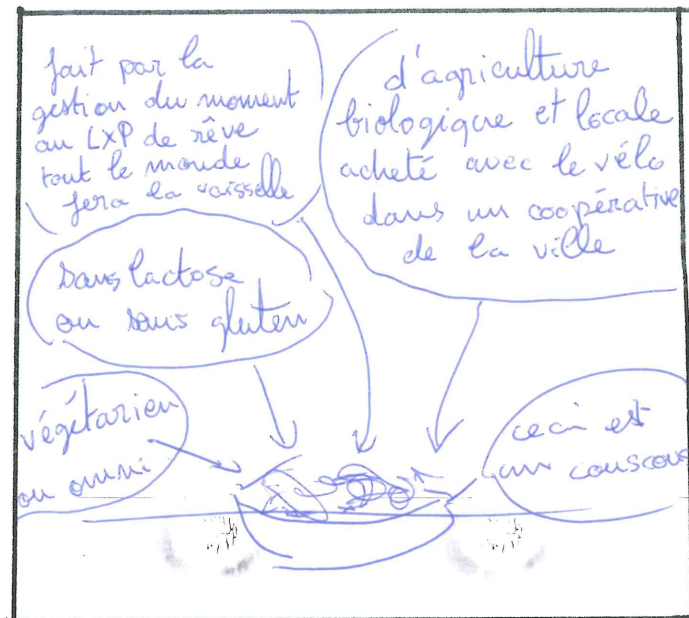 fait par la
gestion du moment
au LXP de rêve
tout le monde
fera la vaisselle
d'agriculture
biologique et locale
acheté avec le vélo
dans un coopérative
de la ville
sans lactose
ou sans gluten
végétarien
ou omni
ceci est
un couscous